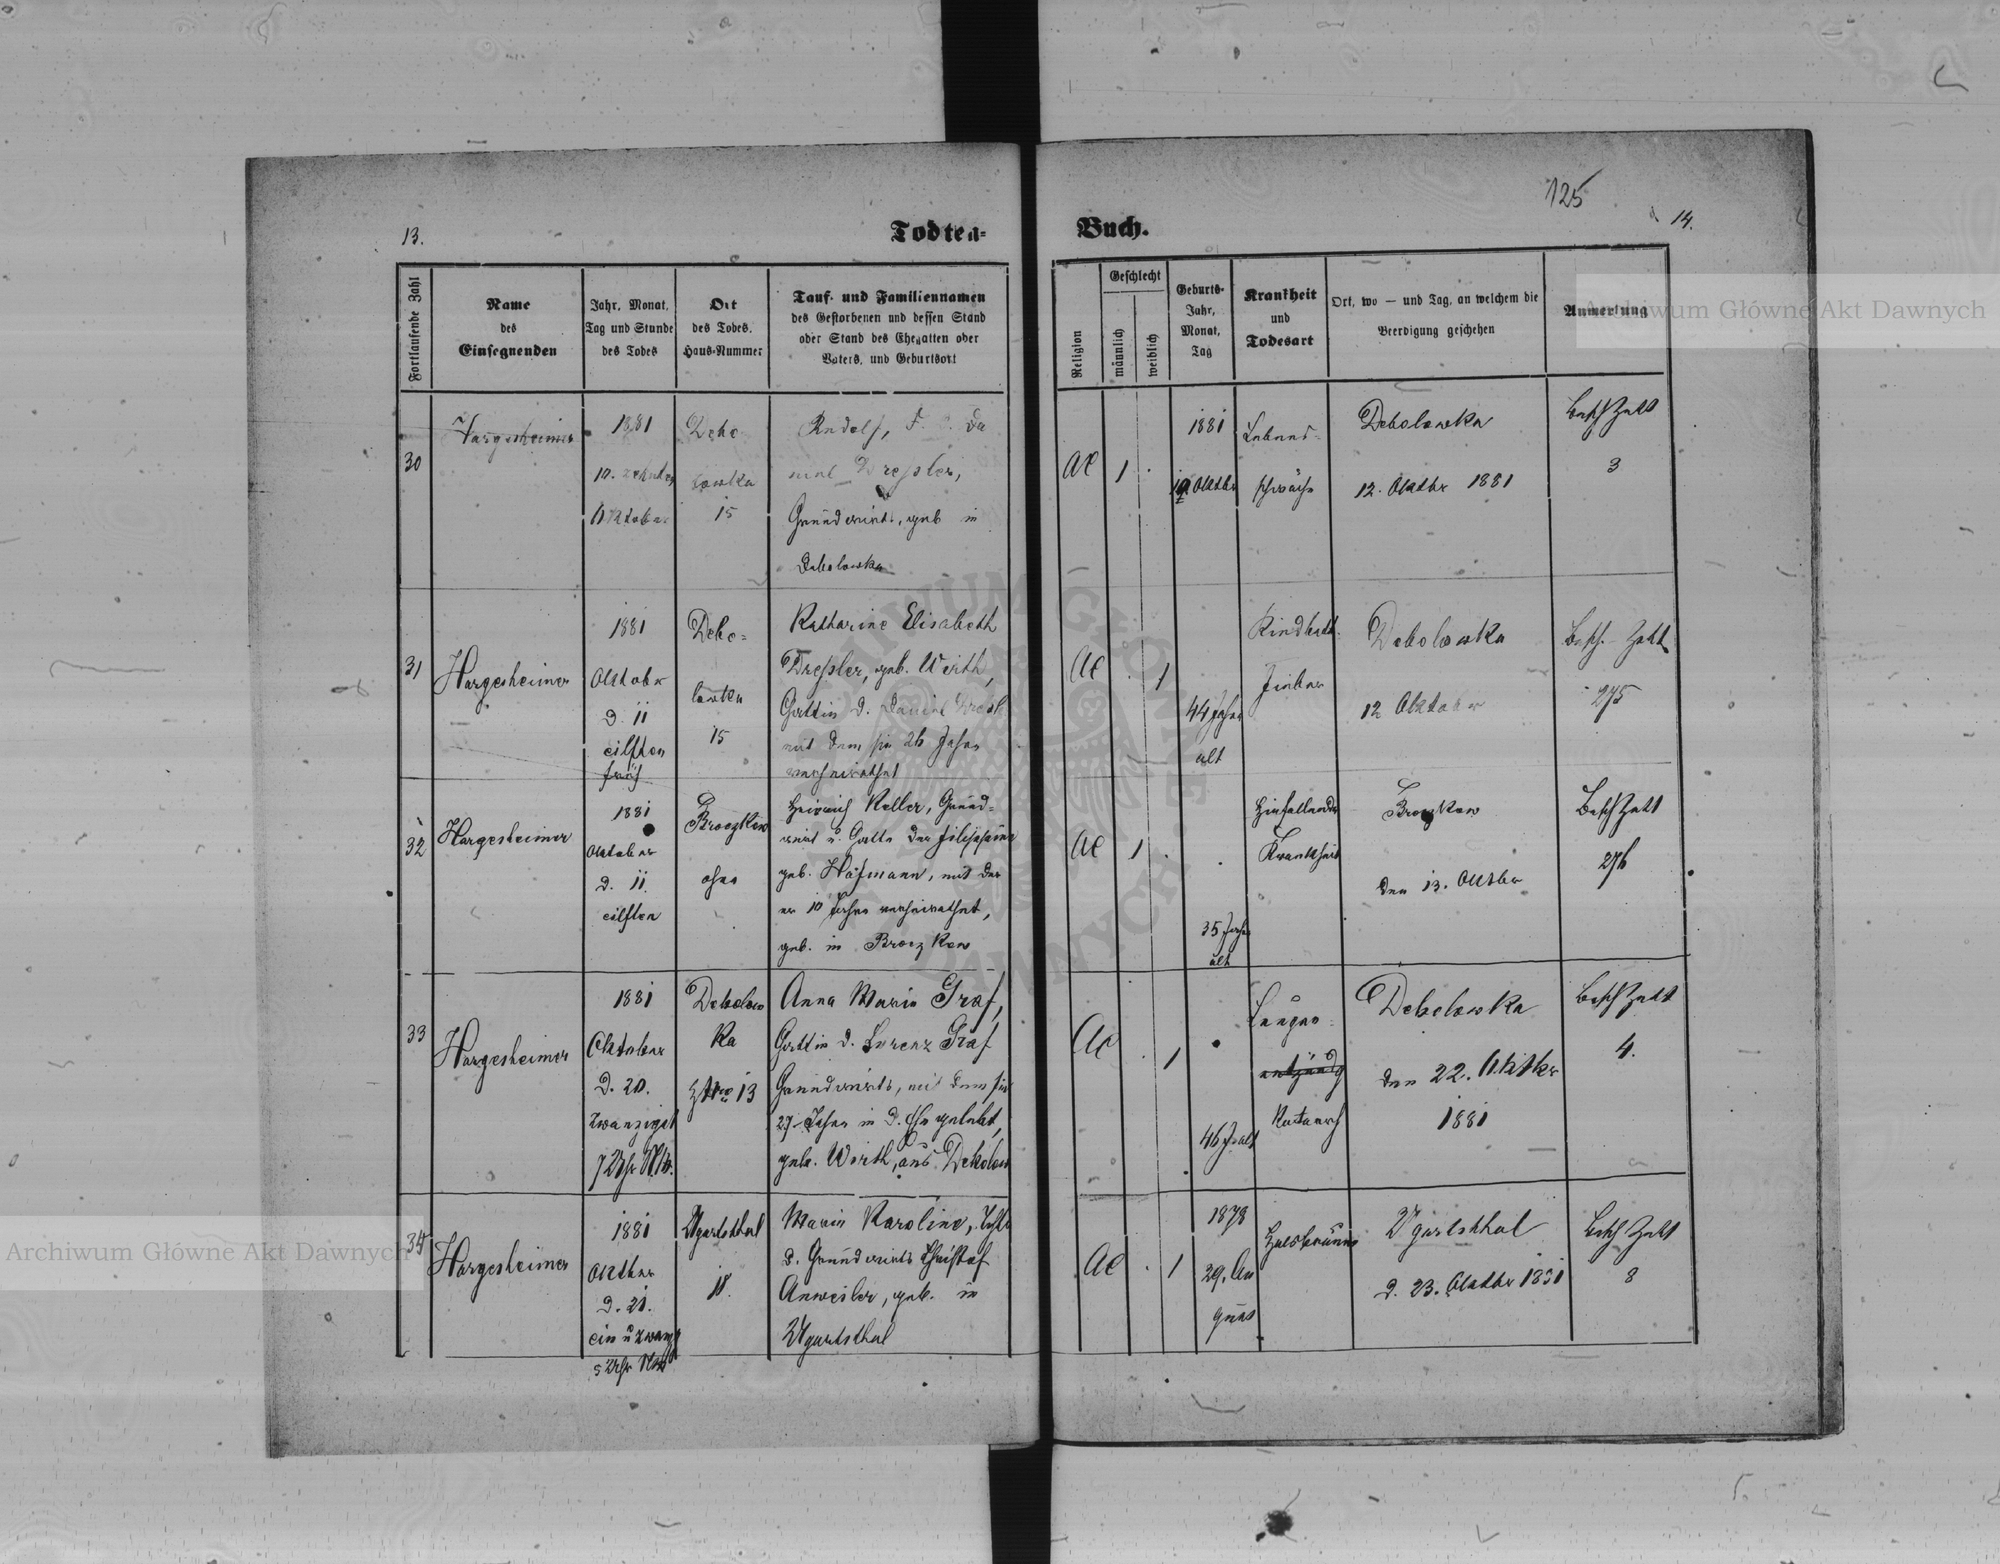 125
13.
Todten-
Buch.
14.
Fortlaufende Zahl
Name
des
Einsegnenden
Jahr, Monat,
Tag und Stunde
des Todes
Ort
des Todes,
Haus-Nummer
Tauf- und Familiennamen
des Gestorbenen und dessen Stand
oder Stand des Ehegatten oder
Vaters, und Geburtsort
Religion
Geschlecht
männlich
weiblich
Geburts-
Jahr,
Monat,
Tag
Krankheit
und
Todesart
Ort, wo — und Tag, an welchem die
Beerdigung geschehen
Anmerkung
30
Hargesheimer
1881
10. zehnten
Oktober
Debo
lowka
15
Rudolf, Da
niel Dressler,
Grundwirts, geb in
Debolowka
AC
1
1881
10. Oktbr
Lebens-
schwäche
Debolowka
12. Oktbr 1881
Besch Zettl
3
31
Hargesheimer
1881
Oktober
d. 11
eilften
früh
Debo=
lowka
15
Katharine Elisabeth
Dressler, geb. Wirth,
Gattin d. Daniel
mit dem sie 26 Jahre
verheirathet
AC
1
44 Jahre
alt
Kindbett-
fieber
Debolowka
12 Oktober
Besch. Zettl
275
32
Hargesheimer
1881
Oktober
d. 11.
eilften
Broczkow
ohne
Heinrich Keller, Grund=
wirt u. Gatte der
geb. Hofmann, mit der
er 10 Jahre verheirathet,
geb. in Broczkow
AC
1
35 Jahre
alt
Hinfallende
Krankheit
Broczkow
den 13. Oktbr
Besch Zettl
276
33
Hargesheimer
1881
Oktober
d. 20.
zwanzigst
7 Uhr
Debolow
ka
13
Anna Maria Graf,
Gattin d. Lorenz Graf
Grundwirts, mit dem sie
27 Jahre in d. Ehe gelebt,
geb. Wirth, aus Debolow
AC
1
46 J alt
Lungen-
entzündg
Katarrh
Debolowka
den 22. Oktbr
1881
Besch Zettl
4.
34
Hargesheimer
1881
Oktber
d. 21.
ein u zwanzg
5 Uhr
Ugartsthal
Maria Karoline, Tocht
d. Grundwirts Christof
Anweiler, geb. in
Ugartsthal
AC
1
1878
29. Au
gust
Halsbräune
Ugartsthal
d. 23. Oktbr 1881
Besch Zettl
8
Archiwum Główne Akt Dawnych
Archiwum Główne Akt Dawnych
ARCHIWUM GŁÓWNE AKT DAWNYCH